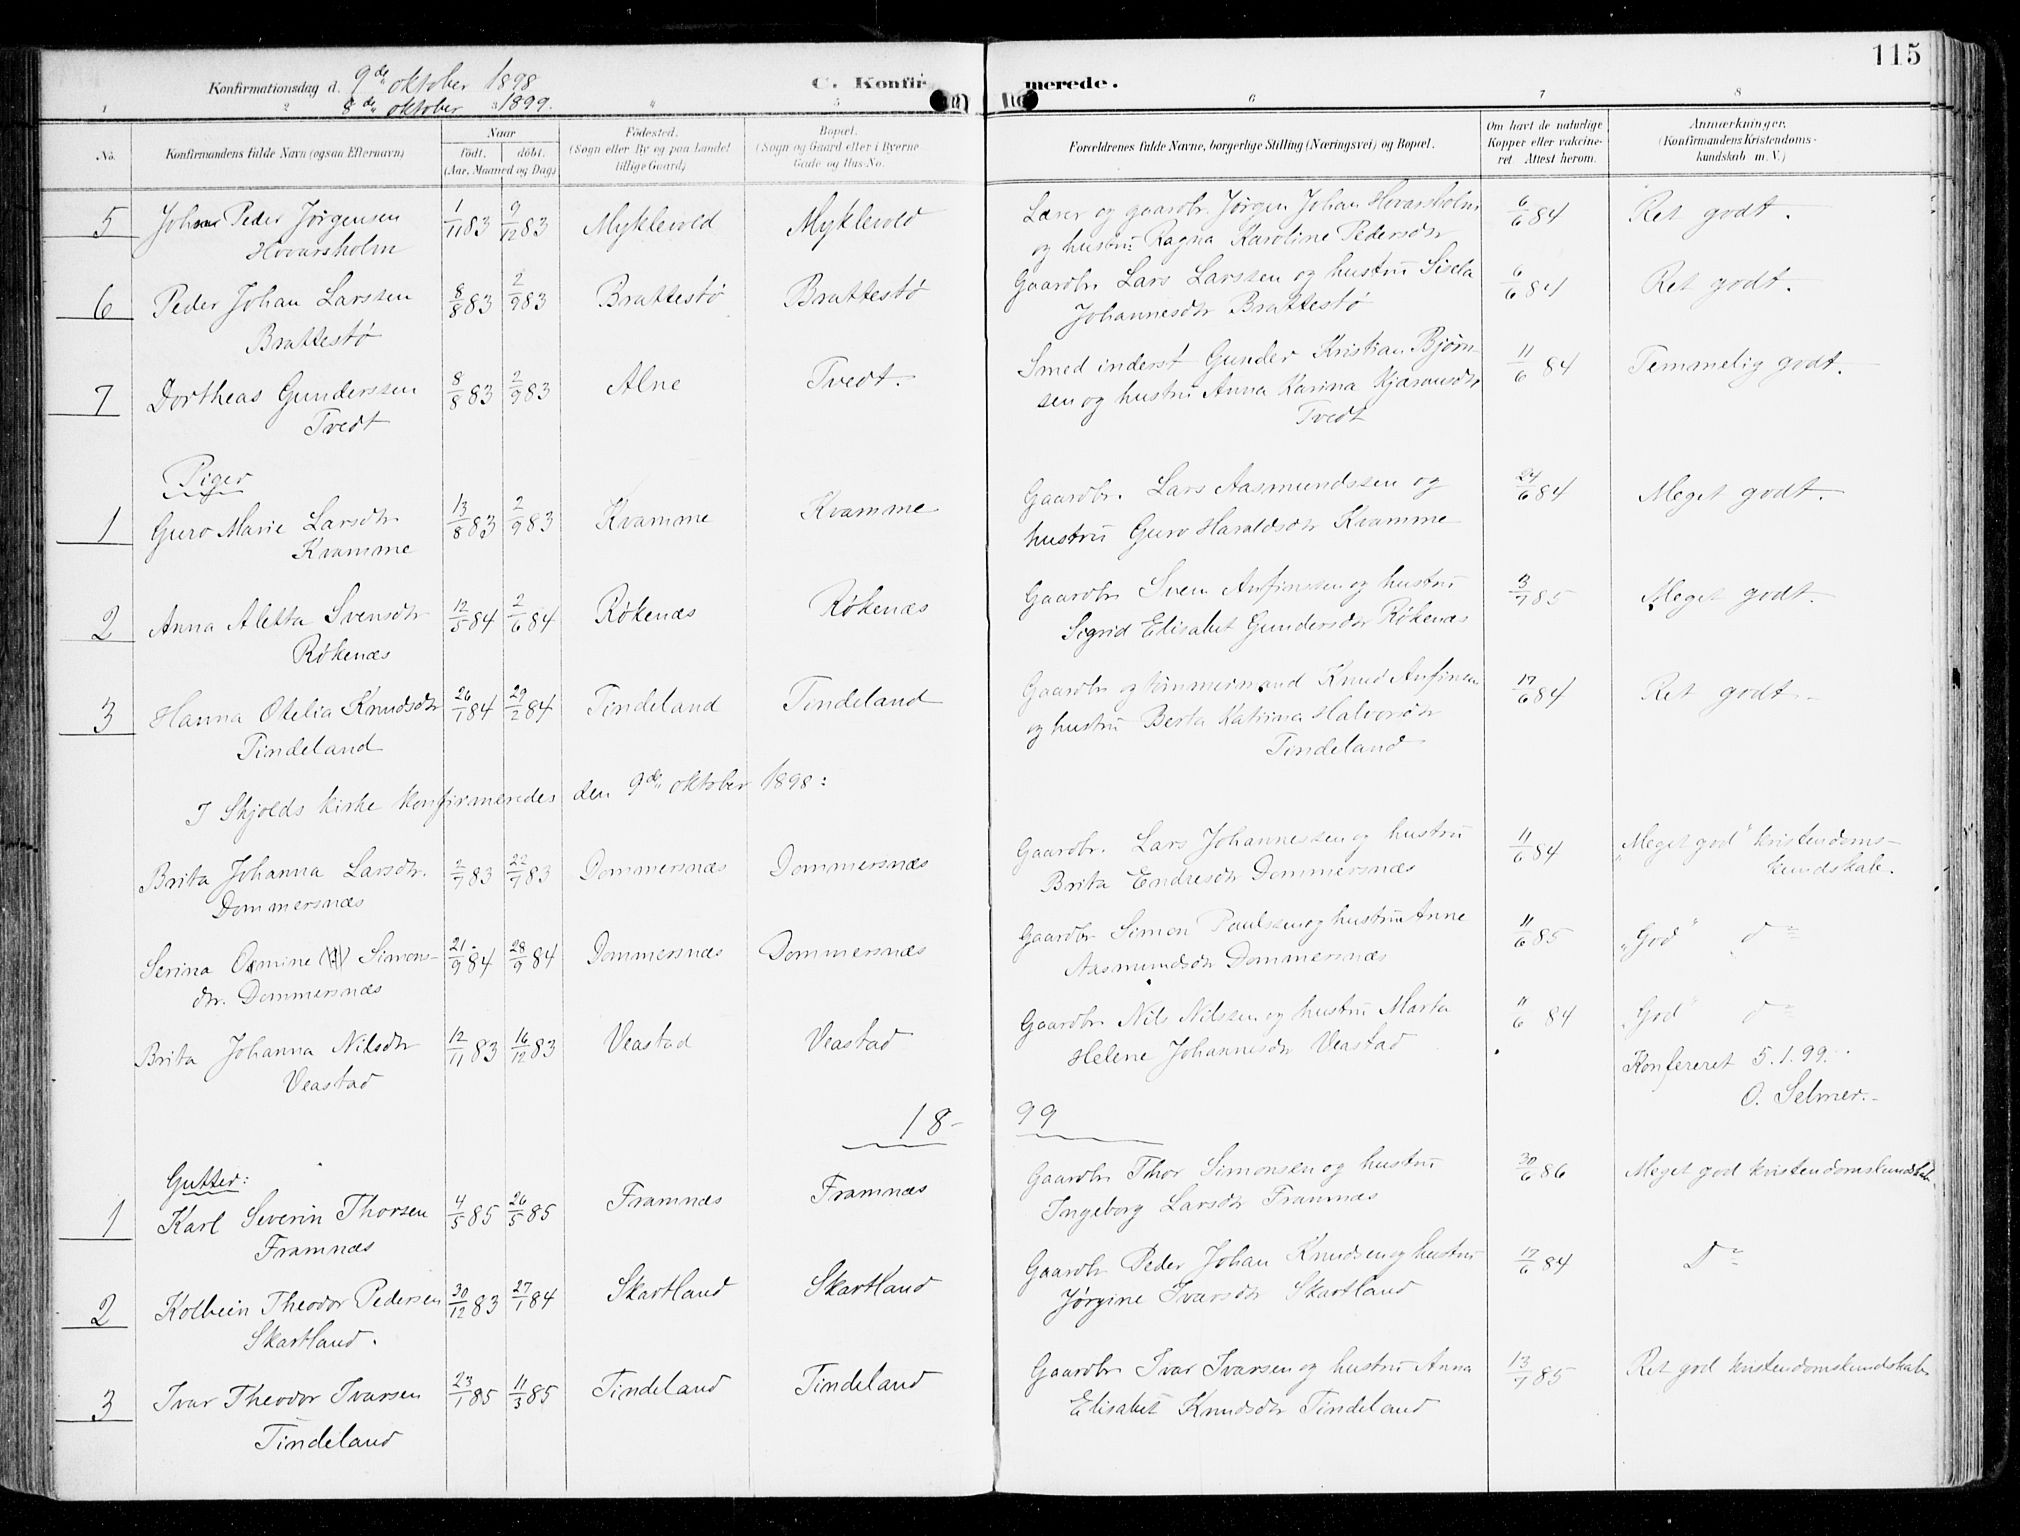 115
Konfirmationsdag d. 9de oktober 1898
8de oktober 1899.
C. Konfirmerede.
1 2 3 4 5 6 7 8
No. Konfirmandens fulde Navn (ogsaa Efternavn) Naar født. døbt. (Aar, Maaned og Dag) Fødested. (Sogn eller By og paa Landet tillige Gaard) Bopæl. (Sogn og Gaard eller i Byerne Gade og Hus-No. Forældrenes fulde Navne, borgerlige Stilling (Næringsvei) og Bopæl. Om havt de naturlige Kopper eller vaccineret. Attest herom. Anmærkninger. (Konfirmandens Kristendomskundskab m. V.)
5 Johan Peder Jørgensen 1/11 83 9/12 83 Myklevold Myklevold Læser og gaardbr. Jørgen Johan Hovarsholm 6/6 84 Ret godt.
Hovarsholm og hustru Ragna Karoline Pedersdtr
6 Peder Johan Larssen 8/8 83 2/9 83 Brattestø Brattestø Gaardbr Lars Larssen og hustru Sisela 6/6 84 Ret godt.
Brattestø Johannesdtr Brattestø
7 Dortheas Gunderssen 8/8 83 2/9 83 Alne Tvedt. Smed inderst Gunder Kristian Bjørn- 11/6 84 Temmelig godt.
Tvedt sen og hustru Anna Karina
Tvedt
Piger
1 Guro Marie Larsdtr 13/8 83 2/9 83 Kvamme Kvamme Gaardbr. Lars Aasmundssen og 24/6 84 Meget godt.
Kvamme hustru Guro Haraldsdtr Kvamme
2 Anna Aletta Svensdtr 12/5 84 2/6 84 Røkenæs Røkenæs Gaardbr Sven Anfinssen og hustru 3/7 85 Meget godt.
Røkenæs Sigrid Elisabet Gundersdtr Røkenæs
3 Hanna Otelia Knudsdtr 26/1 84 29/2 84 Tindeland Tindeland Gaardbr og tømmermand Knud Anfinsen 17/6 84 Ret godt.
Tindeland og hustru Berta Katrina Halvorsdtr
Tindeland
I Skjolds kirke konfirmeredes den 9de oktober 1898:
Brita Johanna Larsdtr. 2/7 83 22/7 83 Dommersnæs Dommersnæs Gaardbr. Lars Johannessen og hustru 11/6 84 "Meget god" kristendoms-
Dommersnæs Brita Endresdtr Dommersnæs kundskab.
Serina Osmine Simons- 21/9 84 28/9 84 Dommersnæs Dommersnæs Gaardbr Simon Paulssen og hustru Anne 11/6 85 "God" do
dtr. Dommersnæs Aasmundsdtr Dommersnæs
Brita Johanna Nilsdtr 12/11 83 16/12 83 Veastad Veastad Gaardbr Nils Nilssen og hustru Marta 11/6 84 "God" do
Veastad Helene Johannesdtr Veastad Konfereret 5.1.99.
O. Selmer.
18- 99
Gutter:
1 Karl Severin Thorsen 4/5 85 26/5 85 Framnæs Framnæs Gaardbr Thor Simonsen og hustru 30/6 86 Meget god kristendomskundskab.
Framnæs Ingeborg Larsdtr Framnæs
2 Kolbein Theodor Pedersen 30/12 83 27/1 84 Skartland Skartland Gaardbr Peder Johan Knudsen og hustru 17/6 84 Do
Skartland. Jørgine Ivarsdtr Skartland
3 Ivar Theodor Ivarsen 23/1 85 11/3 85 Tindeland Tindeland Gaardbr Ivar Ivarsen og hustru Anna 13/7 85 Ret god kristendomskundskab
Tindeland Elisabet Knudsdtr Tindeland